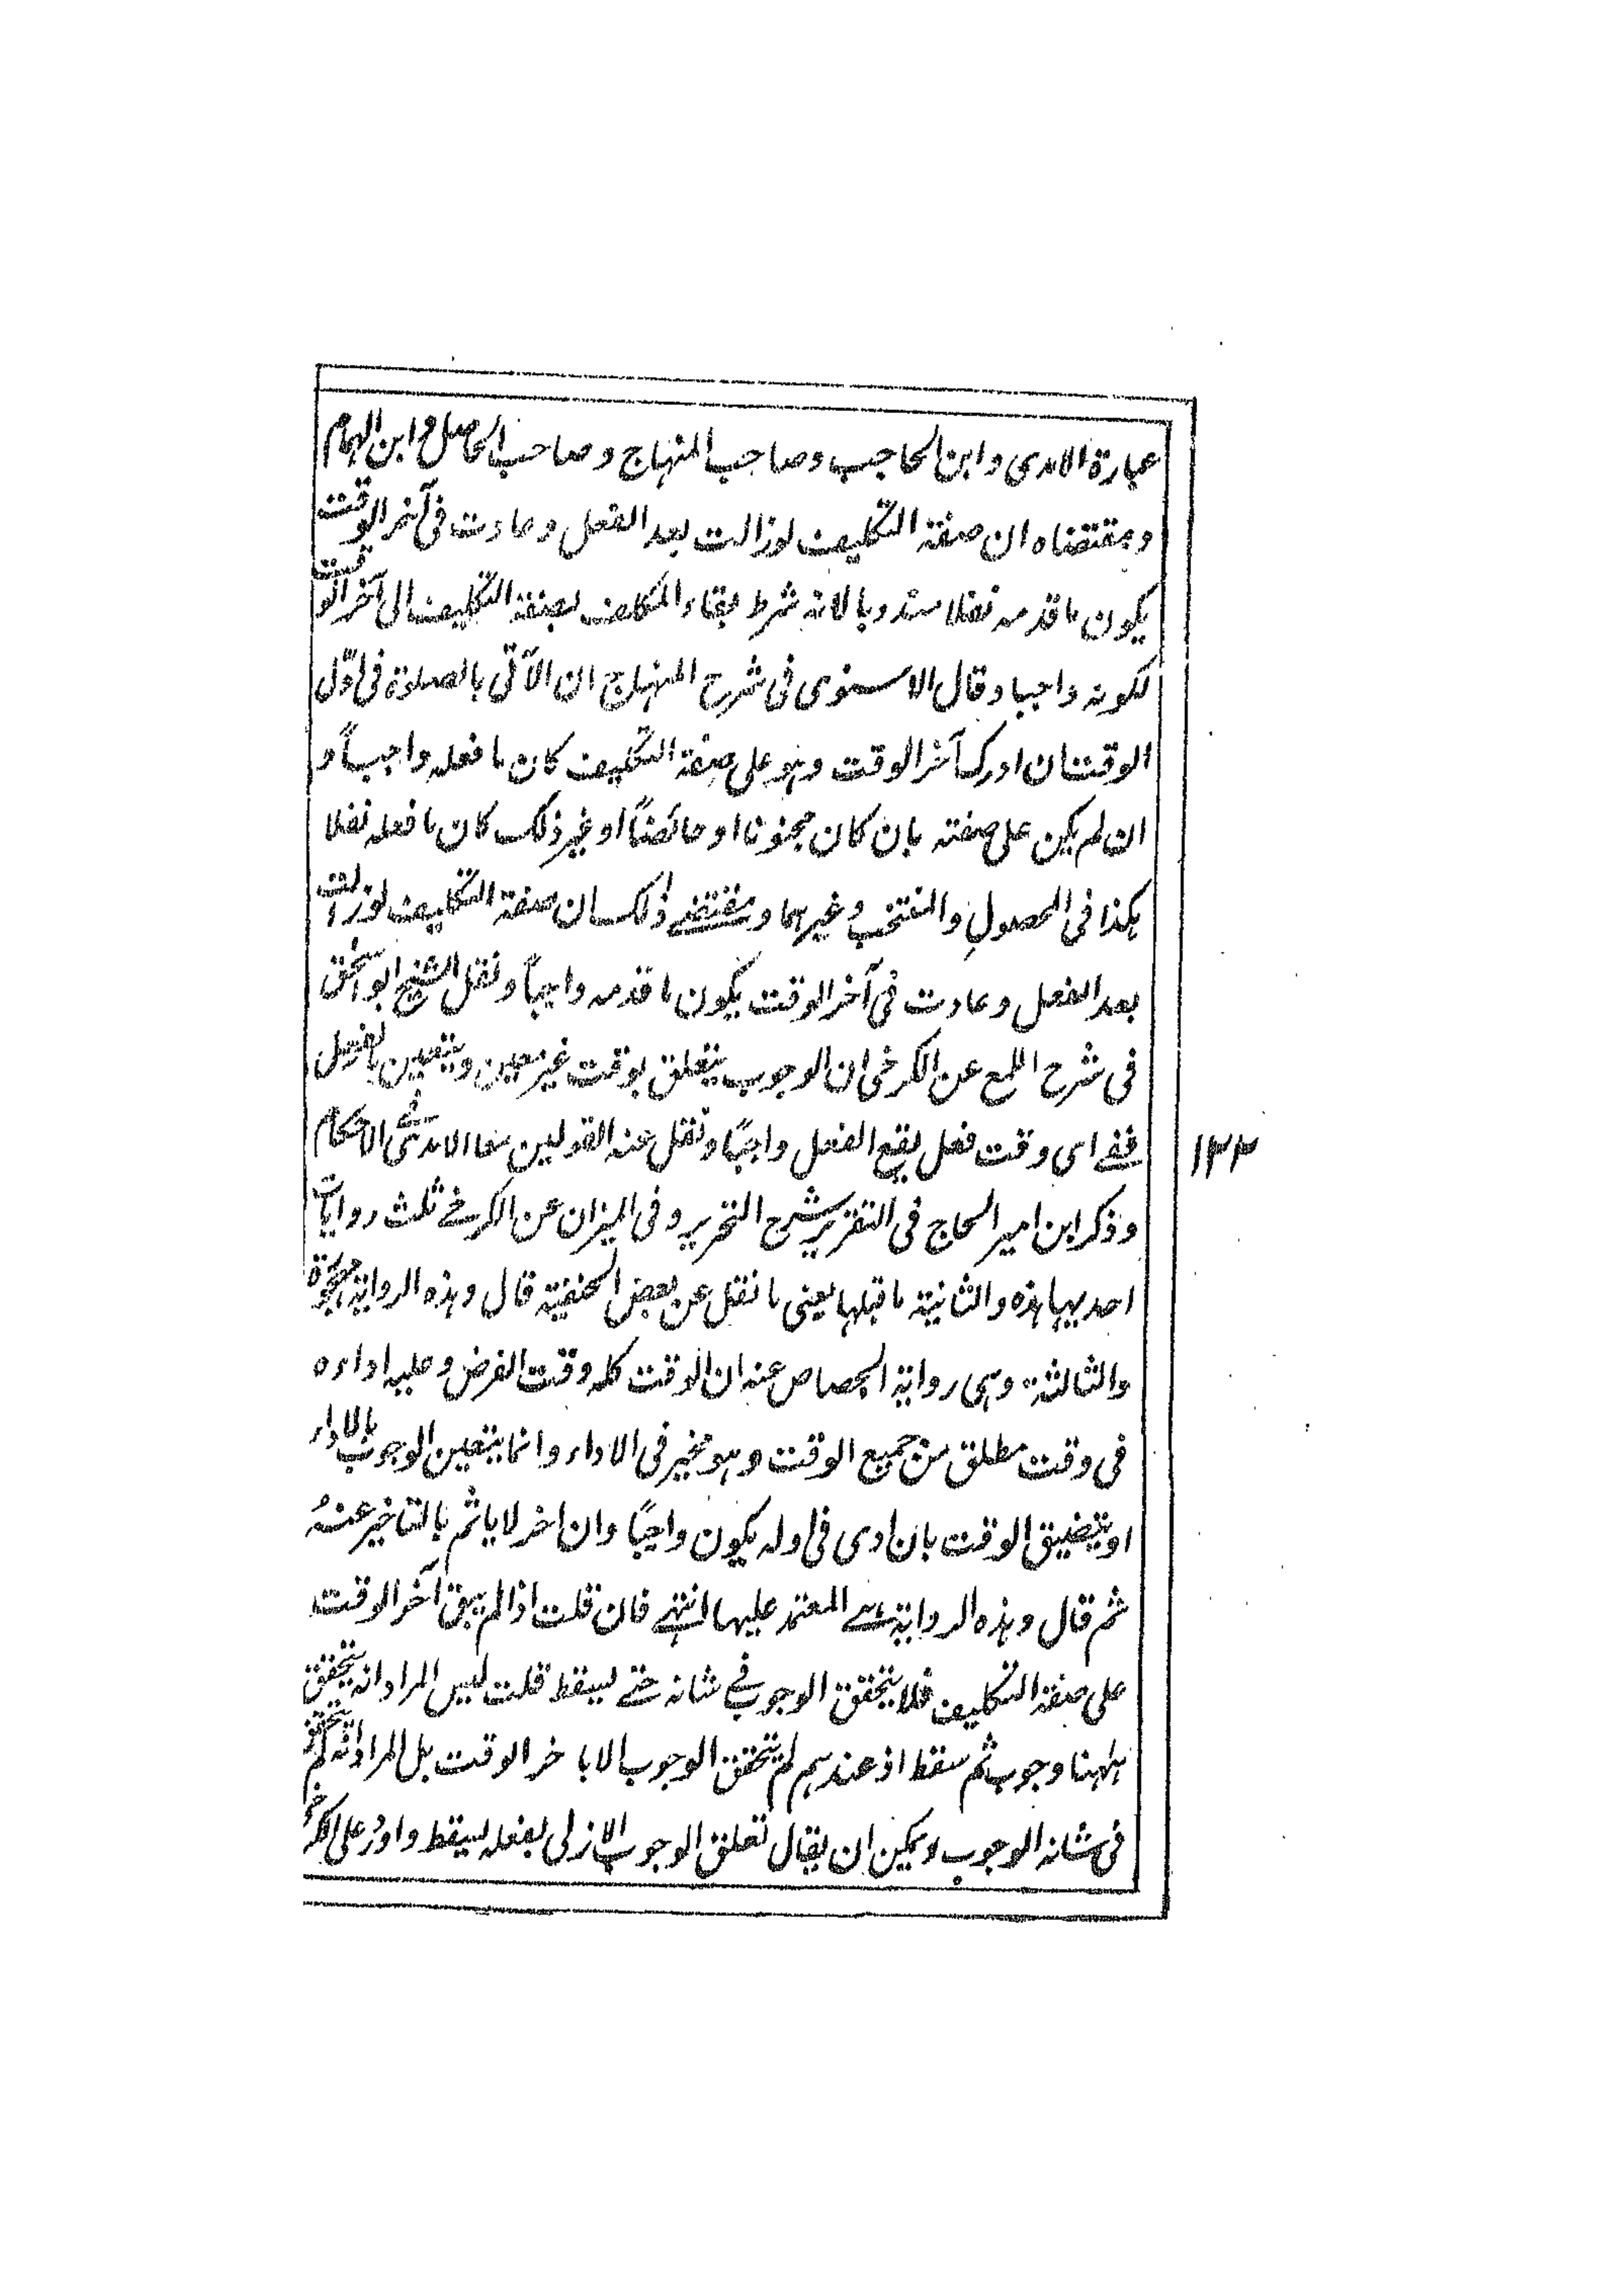 عبارة الامدى وابن الحاجب وصاحب المنهاج وصاحب الحاصل وابن الهمام
ومقتضاه ان صفة التكليف لو زالت بعد الفعل وعادت فى آخر الوقت
يكون ما قدمه نفلا مندوبا لانه شرط بقاء المكلف بصفة التكليف الى آخر الوقت
لكونه واجبا وقال الاسنوى فى شرح المنهاج ان الآتى بالصلوة فى اوّل
الوقت ان ادرك آخر الوقت وهو على صفة التكليف كان ما فعله واجباً و
ان لم يكن على صفته بان كان مجنونا او حائضاً او غير ذلك كان ما فعله نفلا
هكذا فى المحصول والمنتخب وغيرهما ومقتضے ذلك ان صفة التكليف لو زالت
بعد الفعل وعادت فى آخر الوقت يكون ما قدمه واجباً ونقل الشيخ ابو اسحٰق
فى شرح اللمع عن الكرخى ان الوجوب يتعلق بوقت غير معين ويتعين بالفعل
ففے اى وقت فعل يقع الفعل واجبًا ونقل عنه القولين معا الامدى فے الاحكام
وذكر ابن امير الحاج فى التقرير شرح التحرير وفى الميزان عن الكرخے ثلث روايات
احديهما هذه والثانية ما قبلها يعنى ما نقل عن بعض الحنفية قال وهذه الرواية مهجورة
والثالثة وهى رواية الجصاص عنه ان الوقت كله وقت الفرض وعليه اداءه
فى وقت مطلق من جميع الوقت وهو مخير فى الاداء وانما يتعين الوجوب بالاداء
او بتضيق الوقت بان ادى فى اوله يكون واجبًا وان اخر لا ياثم بالتاخير عنهُ
ثم قال وهذه الرواية هے المعتمد عليها انتهے فان قلت اذا لم يبق آخر الوقت
على صفة التكليف فلا يتحقق الوجوب فے شانه حتے يسقط قلت ليس المراد انه يتحقق
ههنا وجوب ثم سقط اذ عندهم لم يتحقق الوجوب الا باخر الوقت بل المراد انّه لم يتحقق
فى شانه الوجوب ويمكن ان يقال تعلق الوجوب الازلى بفعله ليسقط واورُد على الكرخى
١٣٣